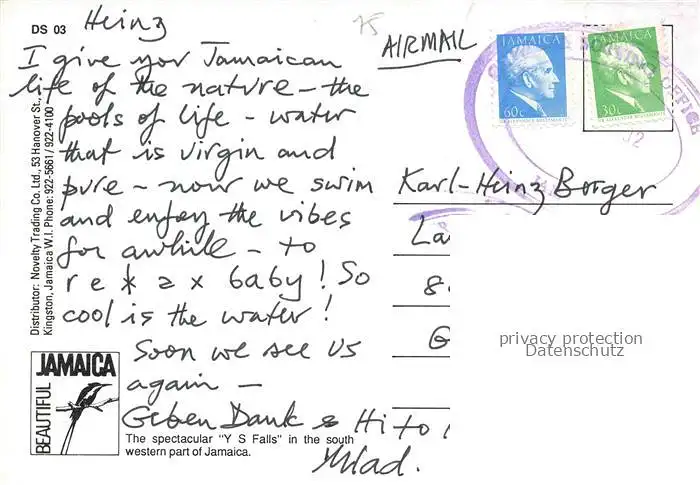 DS 03
Heinz
AIRMAIL
I give you Jamaican
life of the nature – the
pools of life – water
that is virgin and
pure – now we swim
and enjoy the vibes
for awhile – to
relax baby! So
cool is the water!
Soon we see us
again –
Geben Dank & Hi to
Distributor: Novelty Trading Co. Ltd., 53 Hanover St.,
Kingston, Jamaica W.I. Phone: 922-5661 / 922-4100
BEAUTIFUL JAMAICA
The spectacular "Y S Falls" in the south
western part of Jamaica.
JAMAICA
60c
SIR ALEXANDER BUSTAMANTE
JAMAICA
30c
SIR ALEXANDER BUSTAMANTE
SORTING OFFICE
Karl-Heinz Borger
La
8
G
privacy protection
Datenschutz